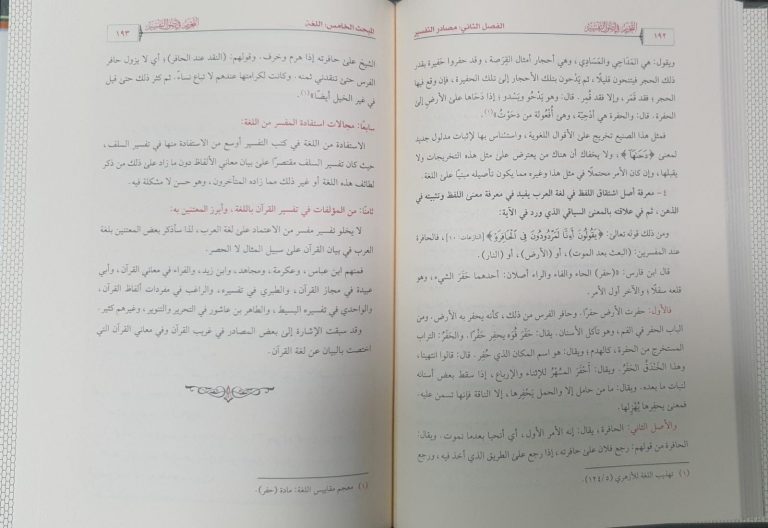 ١٩٢
الفصل الثاني: مصادر التفسير
ويقول: هي المَدَاحِي والمَسَادِي، وهي أحجار أمثال القِرَصة، وقد حفروا حَفيرة بقدر
ذلك الحجر فيتنحون قليلًا، ثم يَدْحُون بتلك الأحجار إلى تلك الحفيرة، فإن وقع فيها
الحجر؛ فقد قَمَر، وإلا فقد قُمِر. قال: وهو يَدْحُو ويَسْدو؛ إذا دَحَاها على الأرض إلى
الحفرة. قال: والحفرة هي أُدْحِيّة، وهي أُفْعُولة من دَحَوْتُ»(١).
فمثل هذا الصنيع تخريج على الأقوال اللغوية، واستئناس بها لإثبات مدلول جديد
لمعنى ﴿دَحَىٰهَآ﴾، ولا يخفاك أن هناك من يعترض على مثل هذه التخريجات ولا
يقبلها، وإن كان الأمر محتملًا في مثل هذا وغيره مما يكون تأصيله مبنيًا على اللغة.
٤- معرفة أصل اشتقاق اللفظ في لغة العرب يفيد في معرفة معنى اللفظ وتثبيته في
الذهن، ثم في علاقته بالمعنى السياقي الذي ورد في الآية:
ومن ذلك قوله تعالى: ﴿يَقُولُونَ أَءِنَّا لَمَرْدُودُونَ فِى ٱلْحَافِرَةِ﴾ [النازعات: ١٠]، فالحافرة
عند المفسرين: (البعث بعد الموت)، أو (الأرض)، أو (النار).
قال ابن فارس: «(حفر) الحاء والفاء والراء أصلان: أحدهما حَفْر الشيء، وهو
قلعه سفلًا؛ والآخر أول الأمر.
فالأول: حفرت الأرض حفرًا. وحافر الفرس من ذلك، كأنه يحفر به الأرض. ومن
الباب الحفر في الفم، وهو تآكل الأسنان. يقال: حَفَرَ فُوهُ يحفِر حَفْرًا. والحَفَرُ: التراب
المستخرج من الحفرة، كالهدم؛ ويقال: هو اسم المكان الذي حُفِر. قال: قالوا انتهينا،
وهذا الخَنْدَقُ الحَفَرُ. ويقال: أَحْفَرَ المُهْرُ للإثناء والإرباع، إذا سقط بعض أسنانه
لنبات ما بعده. ويقال: ما من حامل إلا والحمل يَحْفِرها، إلا الناقة فإنها تسمن عليه.
فمعنى يحفرها يُهْزِلها.
والأصل الثاني: الحافرة، يقال: إنه الأمر الأول، أي أنحيا بعدما نموت. ويقال:
الحافرة من قولهم: رجع فلان على حافرته، إذا رجع على الطريق الذي أخذ فيه، ورجع
(١) تهذيب اللغة للأزهري (١٢٤/٥).
المبحث الخامس: اللغة
١٩٣
الشيخ على حافرته إذا هرم وخرف. وقولهم: (النقد عند الحافر)؛ أي لا يزول حافر
الفرس حتى تنقدني ثمنه. وكانت لكرامتها عندهم لا تباع نَساءً. ثم كثر ذلك حتى قيل
في غير الخيل أيضًا»(١).
سابعًا: مجالات استفادة المفسر من اللغة:
الاستفادة من اللغة في كتب التفسير أوسع من الاستفادة منها في تفسير السلف،
حيث كان تفسير السلف مقتصرًا على بيان معاني الألفاظ دون ما زاد على ذلك من ذكر
لطائف هذه اللغة أو غير ذلك مما زاده المتأخرون، وهو حسن لا مشكلة فيه.
ثامنًا: من المؤلفات في تفسير القرآن باللغة، وأبرز المعتنين به:
لا يخلو تفسير مفسر من الاعتماد على لغة العرب، لذا سأذكر بعض المعتنين بلغة
العرب في بيان القرآن على سبيل المثال لا الحصر.
فمنهم ابن عباس، وعكرمة، ومجاهد، وابن زيد، والفراء في معاني القرآن، وأبي
عبيدة في مجاز القرآن، والطبري في تفسيره، والراغب في مفردات ألفاظ القرآن،
والواحدي في تفسيره البسيط، والطاهر بن عاشور في التحرير والتنوير، وغيرهم كثير.
وقد سبقت الإشارة إلى بعض المصادر في غريب القرآن وفي معاني القرآن التي
اختصت بالبيان عن لغة القرآن.
(١) معجم مقاييس اللغة: مادة (حفر).